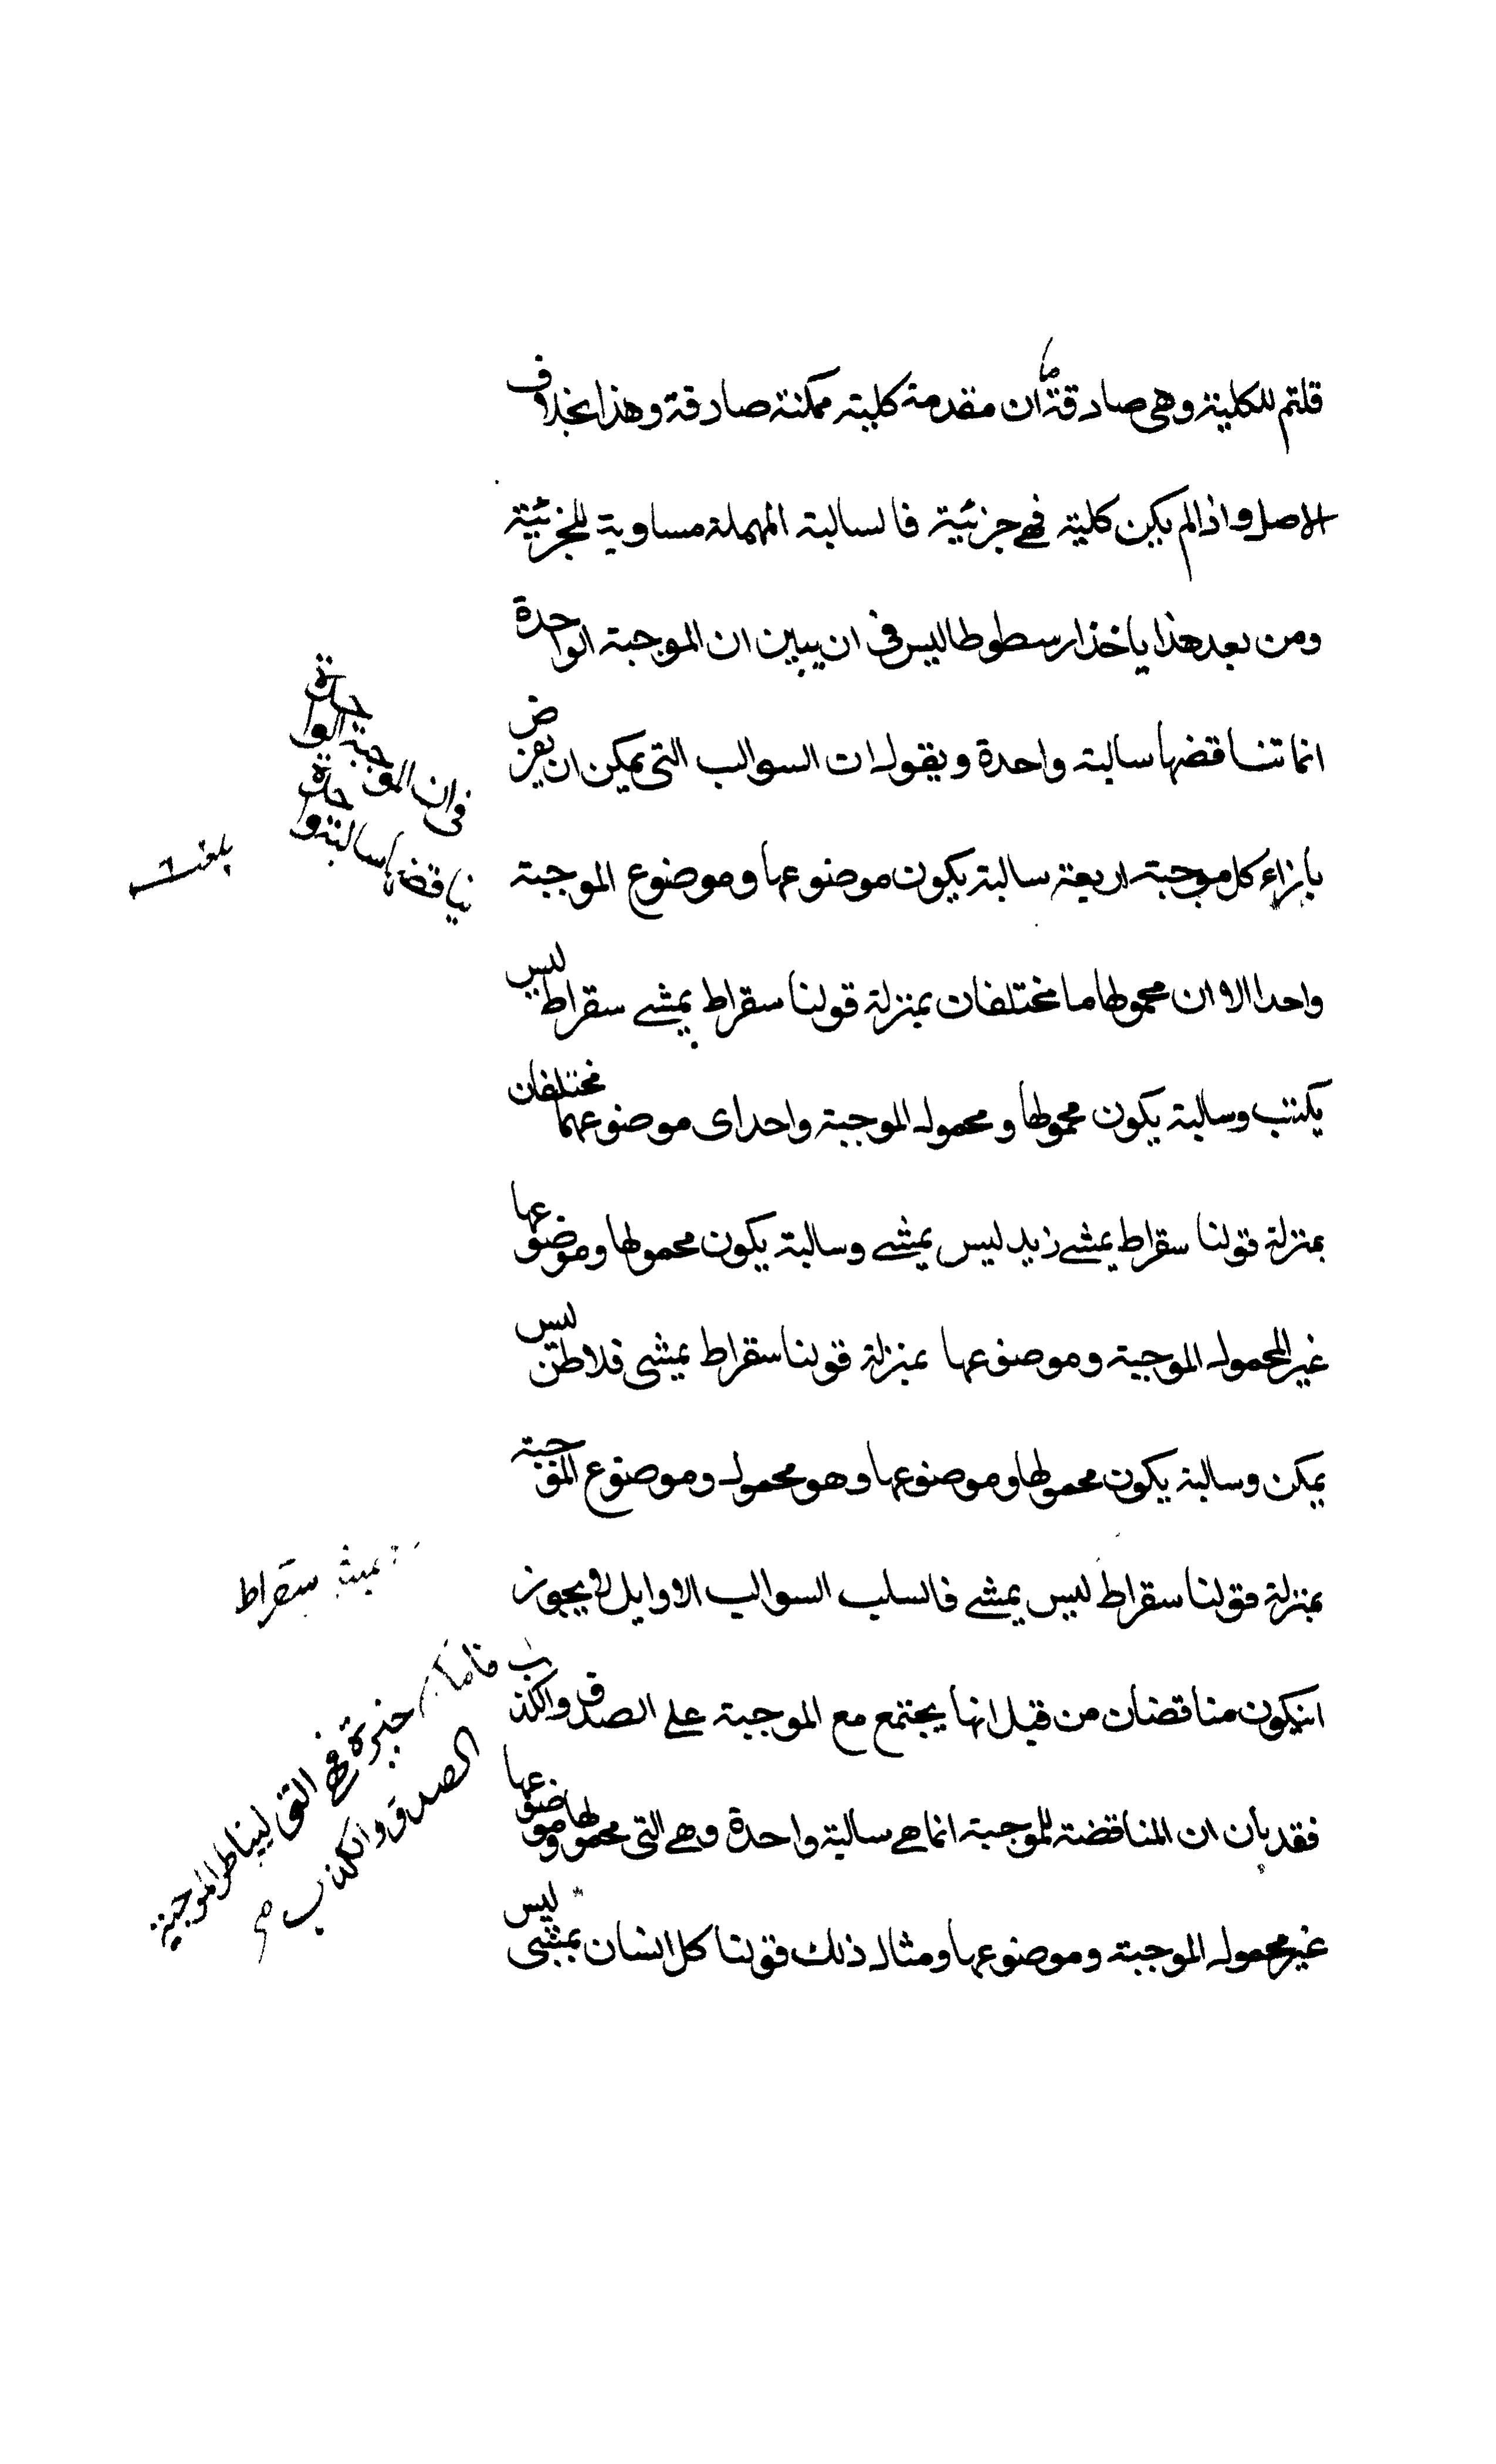 قلتم للكلية وهى صادقة ان مقدمة كلية ممكنة صادقة وهذا بخلاف
الاصل واذا لم يكن كلية فهى جزئية فالسالبة المهملة مساوية للجزئية
ومن بعد هذا ياخذ ارسطوطاليس فى ان يبين ان الموجبة الواحدة
انما تناقضها سالبة واحدة ويقول ان السوالب التى يمكن ان يفرض
بازاء كل موجبة اربعة سالبة يكون موضوعها وموضوع الموجبة
واحدا الا ان محمولهاما مختلفان بمنزلة قولنا سقراط يمشى سقراط ليس
يكتب وسالبة يكون محمولها ومحمول الموجبة واحداى موضوعهما مختلفان
بمنزلة قولنا سقراط يمشى زيد ليس يمشى وسالبة يكون محمولها وموضوعها
غير المحمول الموجبة وموضوعها بمنزلة قولنا سقراط يمشى فلاطن ليس
يمكن وسالبة يكون محمولها وموضوعها وهو محمول وموضوع الموجبة
بمنزلة قولنا سقراط ليس يمشى فالسلب السوالب الاوايل لا يجوز
ان يكون مناقضان من قبل انها يجتمع مع الموجبة على الصدق والكذب
فقد بان ان المناقضة للموجبة انما هى سالبة واحدة وهى التى محمولها وموضوعها
غير محمول الموجبة وموضوعها ومثال ذلك قولنا كل انسان يمشى ليس
فى ان الموجبة الواحدة
يناقضها سالبة واحدة
بلغت
يمشى سقراط
فاما فهى التى الموجبة
الصدق والكذب